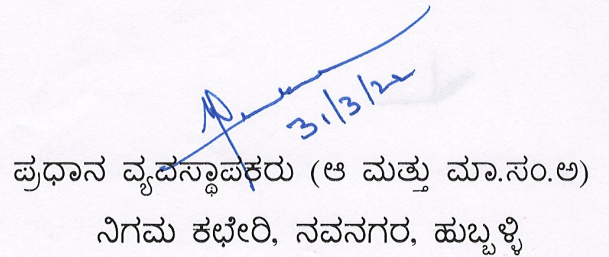 31/3/22
ಪ್ರಧಾನ ವ್ಯವಸ್ಥಾಪಕರು (ಆ ಮತ್ತು ಮಾ.ಸಂ.ಅ)
ನಿಗಮ ಕಛೇರಿ, ನವನಗರ, ಹುಬ್ಬಳ್ಳಿ